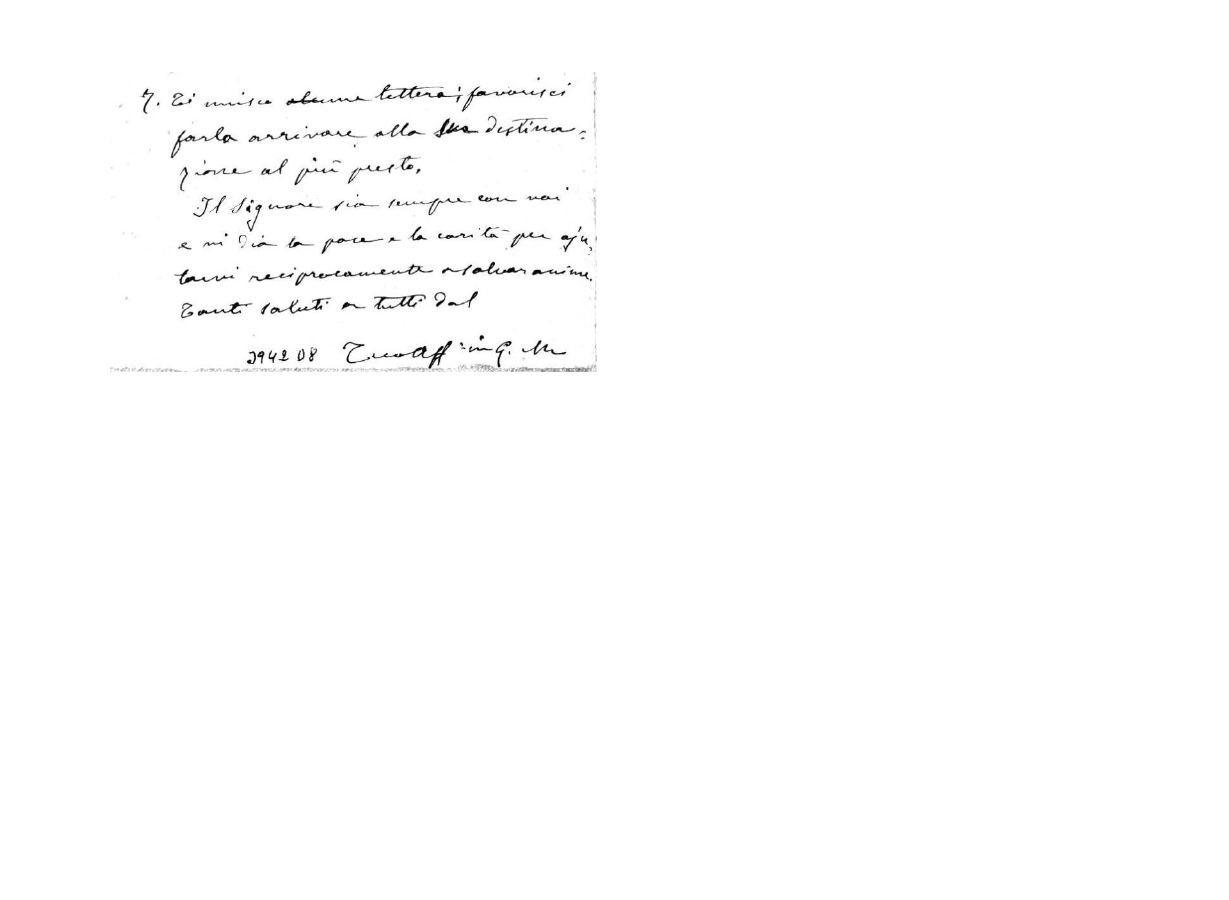 7. Ti unisco alcune lettera; favorisci
farla arrivare alla sua destina=
zione al più presto.
Il Signore sia sempre con voi
e vi dia la pace e la carità per aju,
tarvi reciprocamente a salvar anime.
Tanti saluti a tutti dal
394208 Tuo Aff: in G. M